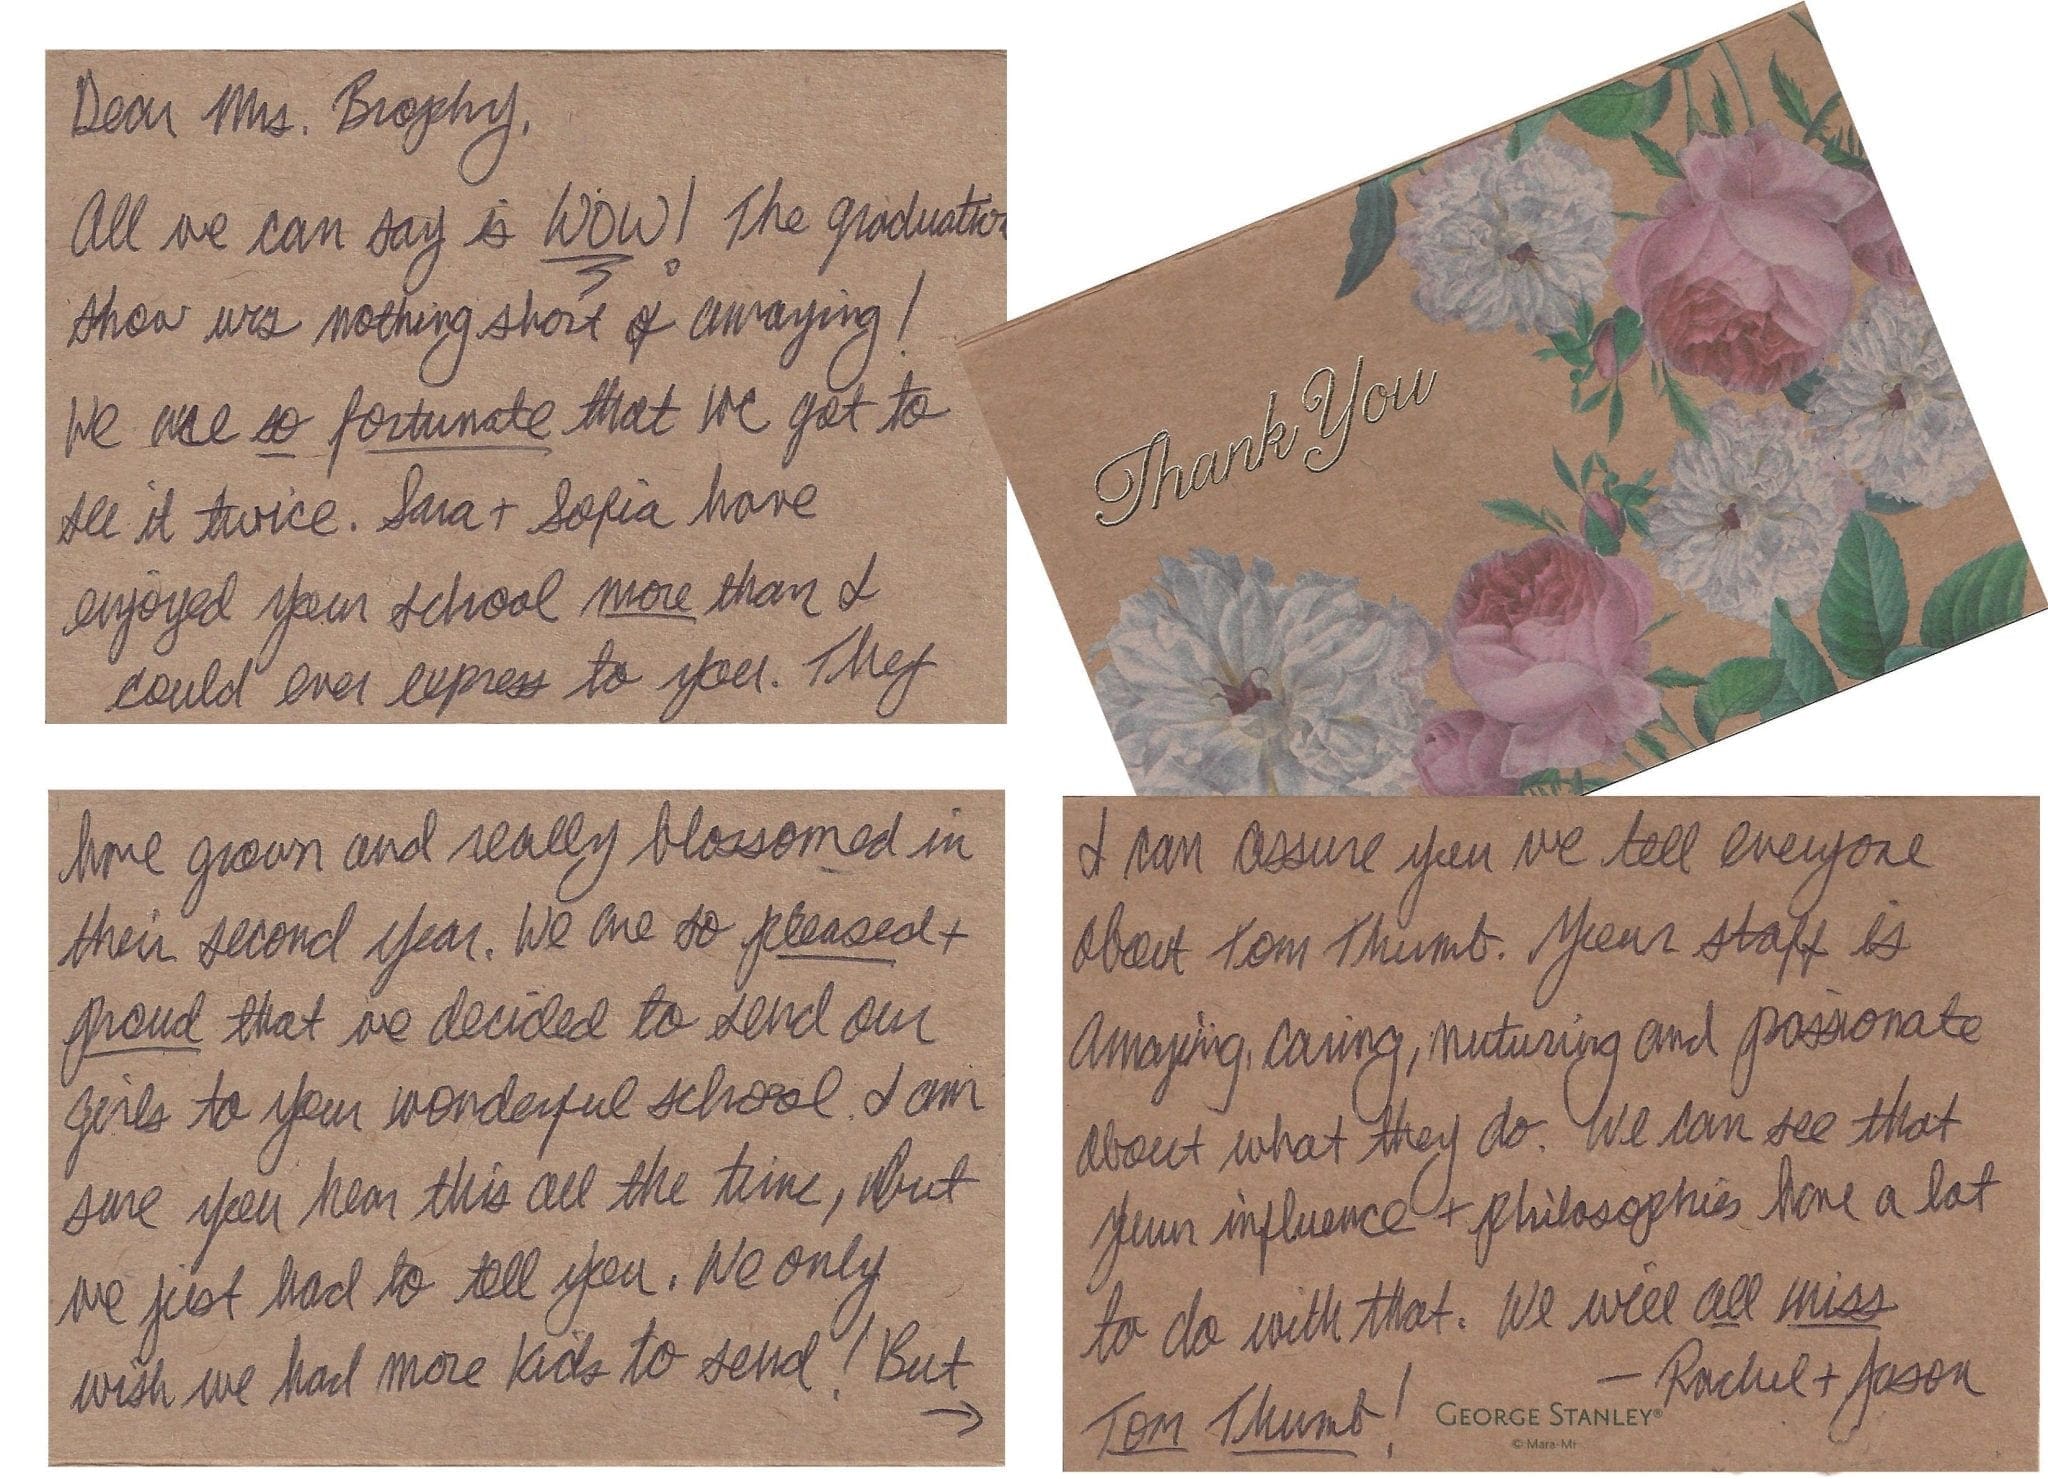 Dear Mrs. Brophy,
All we can say is WOW! The graduation
show was nothing short of amazing!
We are so fortunate that we got to
see it twice. Sara + Sofia have
enjoyed your school more than I
could ever express to you. They
Thank You
have grown and really blossomed in
their second year. We are so pleased +
proud that we decided to send our
girls to your wonderful school. I am
sure you hear this all the time, but
we just had to tell you. We only
wish we had more kids to send! But
→
I can assure you we tell everyone
about Tom Thumb. Your staff is
amazing, caring, nuturing and passionate
about what they do. We can see that
your influence + philosophies have a lot
to do with that. We will all miss
Tom Thumb!
— Rachel + Jason
GEORGE STANLEY®
© Mara-Mi